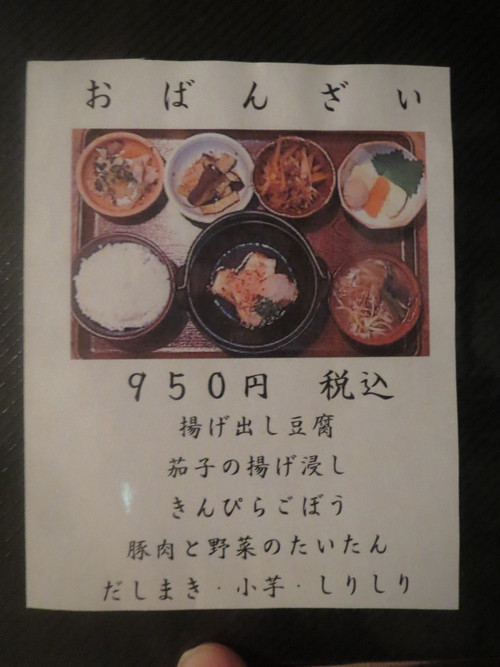 おばんざい
９５０円　税込
揚げ出し豆腐
茄子の揚げ浸し
きんぴらごぼう
豚肉と野菜のたいたん
だしまき・小芋・しりしり